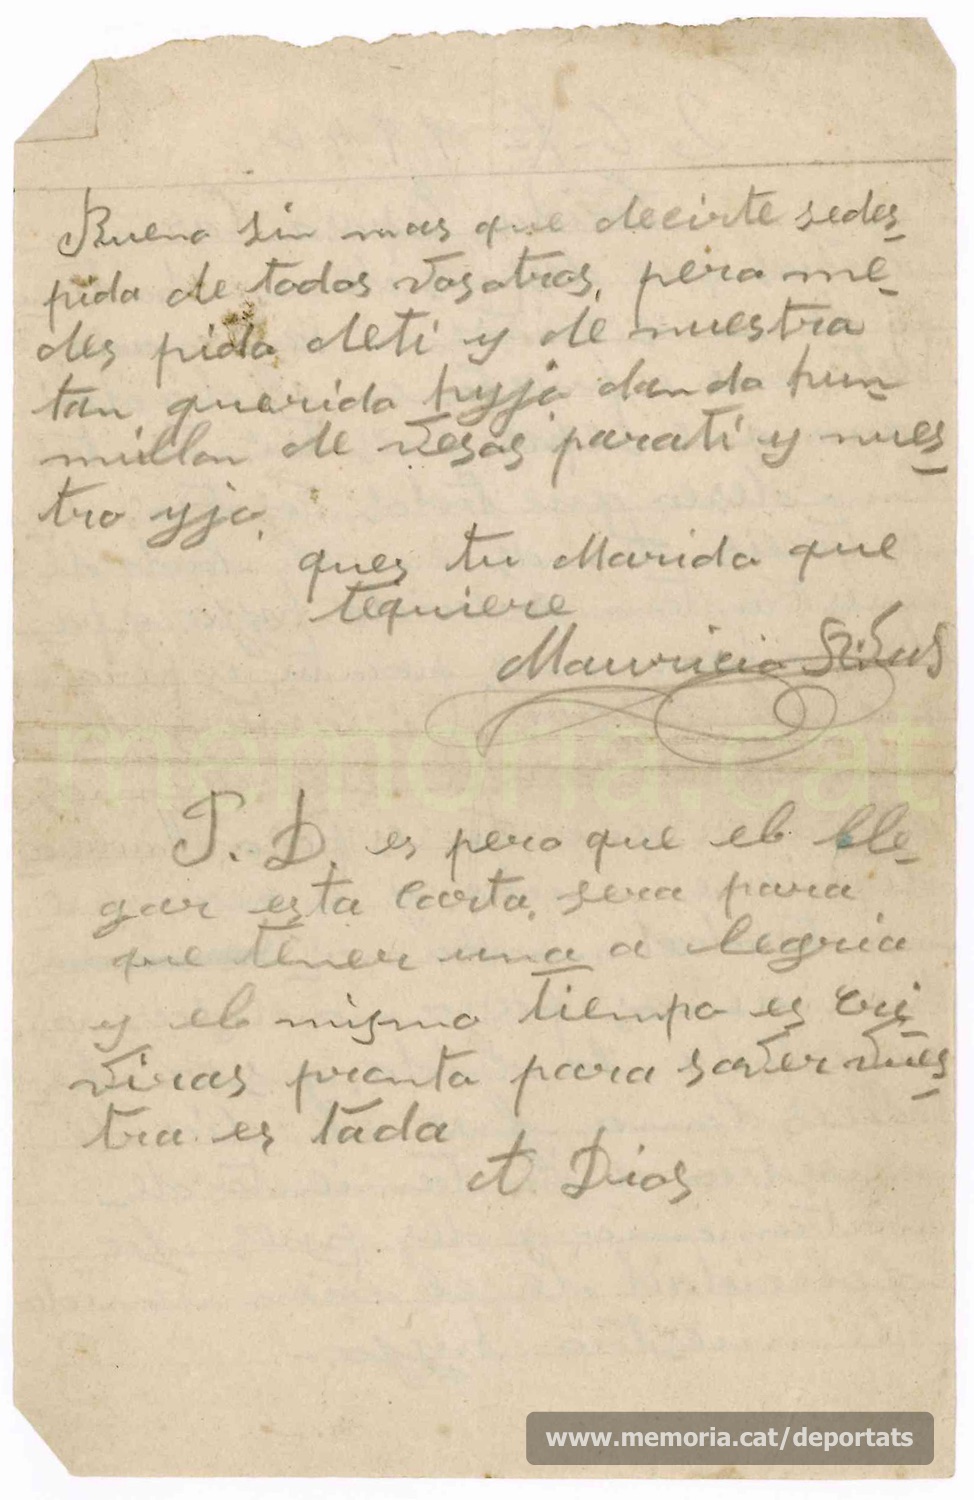 Bueno sin mas que decirte sedes-
pido de todos vosotros, pero me-
des pido deti y de nuestra
tan querida hyja dando hun
millon de vesos parati y nues-
tro yjo.
ques tu Marido que
tequiere
Mauricio
P. D. es pero que el lle-
gar esta Carta, sera para
que tener una a legria
y el mismo tiempo es cri-
viras pronto para saver vues-
tra es tado
A Dios
memoria.cat
www.memoria.cat/deportats